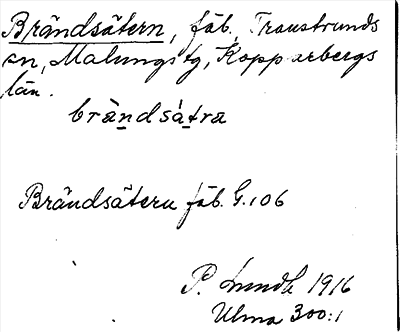 Brändsätern, fäb., Transtrands
sn, Malungs tg, Kopparbergs
län.
brändsätra
Brändsätern fäb. G. 106
P. Lundh 1916
Ulma 300:1